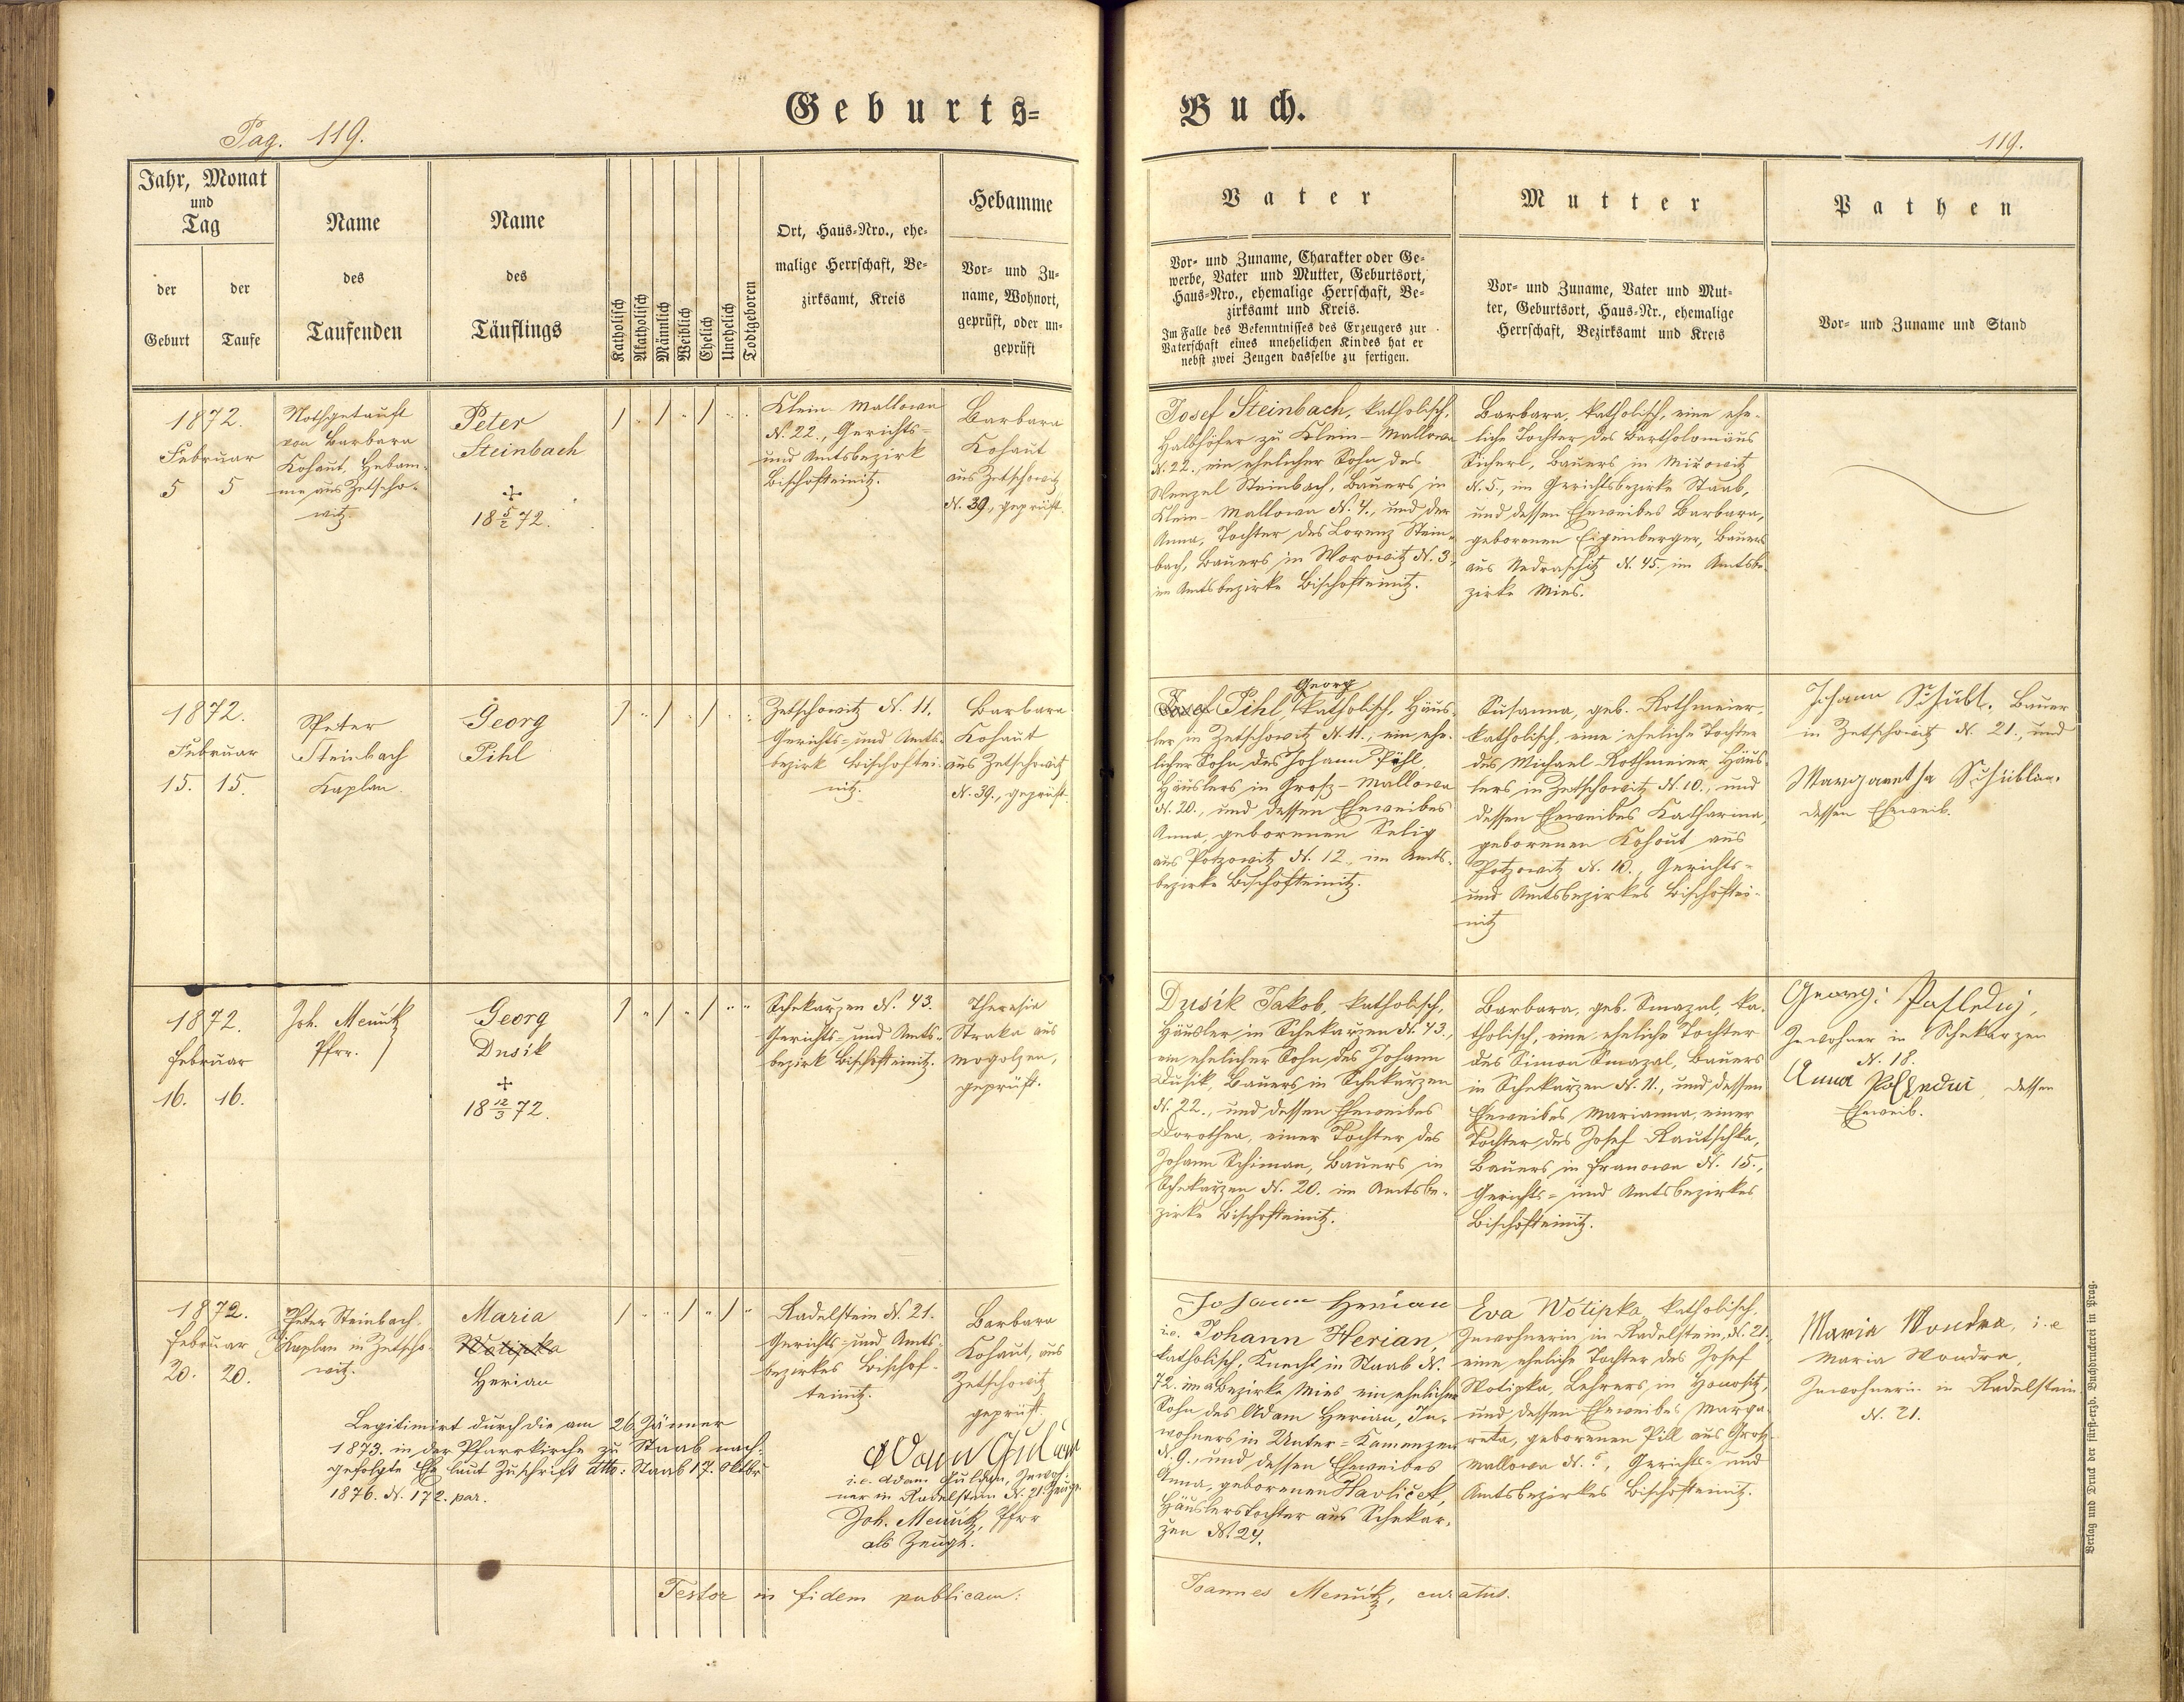 Geburts-
Buch.
Pag. 119.
119.
Jahr, Monat
und
Tag
der
Geburt
der
Taufe
Name
des
Taufenden
Name
des
Täuflings
Katholisch
Akatholisch
Männlich
Weiblich
Ehelich
Unehelich
Todtgeboren
Ort, Haus-Nro., ehe-
malige Herrschaft, Be-
zirksamt, Kreis
Hebamme
Vor- und Zu-
name, Wohnort,
geprüft, oder un-
geprüft
Vater
Vor- und Zuname, Charakter oder Ge-
werbe, Vater und Mutter, Geburtsort,
Haus-Nro., ehemalige Herrschaft, Be-
zirksamt und Kreis.
Im Falle des Bekenntnisses des Erzeugers zur
Vaterschaft eines unehelichen Kindes hat er
nebst zwei Zeugen dasselbe zu fertigen.
Mutter
Vor- und Zuname, Vater und Mut-
ter, Geburtsort, Haus-Nr., ehemalige
Herrschaft, Bezirksamt und Kreis
Pathen
Vor- und Zuname und Stand
1872.
Februar
5 5
Nothgetauft
von Barbara
Kohaut, Hebam-
me aus Zetscho-
witz.
Peter
Steinbach
+
18 5/2 72.
Klein-Mallowa
N. 22., Gerichts-
und Amtsbezirk
Bischofteinitz.
Barbara
Kohaut
aus Zetschowitz
N. 39., geprüft.
Josef Steinbach, katholisch,
Halbhöfer zu Klein-Mallowa
N. 22., ein ehelicher Sohn des
Wenzel Steinbach, Bauers in
Klein-Mallowa N. 4., und der
Anna, Tochter des Lorenz Stein-
bach, Bauers in Worowitz N. 3.,
im Amtsbezirke Bischofteinitz.
Barbara, katholisch, eine ehe-
liche Tochter des Bartholomäus
Sicherl, Bauers in Mirowitz
N. 5., im Gerichtsbezirke Staab,
und dessen Eheweibes Barbara,
geborenen Eigenberger, Bauers
aus Nedraschitz N. 45., im Amtsbe-
zirke Mies.
1872.
Februar
15. 15.
Peter
Steinbach
Kaplan.
Georg
Pihl
Zetschowitz N. 11.
Gerichts- und Amts-
bezirk Bischoftei-
nitz.
Barbara
Kohaut
aus Zetschowitz
N. 39., geprüft.
Georg
Pihl, katholisch, Häus-
ler in Zetschowitz N. 11., ein ehe-
licher Sohn des Johann Pihl,
Häuslers in Groß-Mallowa
N. 20., und dessen Eheweibes
Anna, geborenen Selig
aus Potzowitz N. 12., im Amts-
bezirke Bischofteinitz.
Susanna, geb. Rothmeier,
katholisch, eine eheliche Tochter
des Michael Rothmeier, Häus-
lers in Zetschowitz N. 10., und
dessen Eheweibes Katharina,
geborenen Kohout aus
Potzowitz N. 10., Gerichts-
und Amtsbezirkes Bischoftei-
nitz
Johann Schübl, Bauer
in Zetschowitz N. 21., und
Margaretha
dessen Eheweib.
1872.
Februar
16. 16.
Joh. Menzik
Pfrr.
Georg
Dusik
+
18 12/3 72.
Schekarzen N. 43.
Gerichts- und Amts-
bezirk Bischofteinitz.
Theresia
Straka aus
Mogolzen,
geprüft.
Dusik Jakob, katholisch,
Häusler in Schekarzen N. 43.,
ein ehelicher Sohn des Johann
Dusik, Bauers in Schekarzen
N. 22., und dessen Eheweibes
Dorothea, einer Tochter des
Johann Schiman, Bauers in
Schekarzen N. 20. im Amtsbe-
zirke Bischofteinitz.
Barbara, geb. Smazal, ka-
tholisch, eine eheliche Tochter
des Simon Smazal, Bauers
in Schekarzen N. 11., und dessen
Eheweibes Marianna, einer
Tochter des Josef Rautschka,
Bauers in Franowa N. 15.,
Gerichts- und Amtsbezirkes
Bischofteinitz.
Georg
Inwohner in Schekarzen
N. 18.
Anna dessen
Eheweib.
1872.
Februar
20. 20.
Peter Steinbach,
Kaplan in Zetscho-
witz.
Maria
Wotipka
Herian
Radelstein N. 21.
Gerichts- und Amts-
bezirkes Bischof-
teinitz.
Barbara
Kohaut, aus
Zetschowitz
geprüft.
Legitimirt durch die am 26. Jänner
1873. in der Pfarrkirche zu Staab nach-
gefolgte Ehe laut Zuschrift dtto: Staab 17. Oktbr
1876. N. 172. par.
Adam Gulden
i.e. Adam Gulden, Inwoh-
ner in Radelstein N. 21 Zeuge.
Joh. Menzik, Pfrr
als Zeuge.
Johann Herian
i.e. Johann Herian,
katholisch, Knecht in Staab N.
72. im Bezirke Mies ein ehelicher
Sohn des Adam Herian, In-
wohners in Unter-Kamenzen
N. 9., und dessen Eheweibes
Anna, geborenen Havliček,
Häuslerstochter aus Schekar-
zen N. 24.
Eva Wotipka, katholisch,
Inwohnerin in Radelstein, N. 21.
eine eheliche Tochter des Josef
Wotipka, Lehrers in Honositz,
und dessen Eheweibes Marga-
reta, geborenen Pill aus Groß-
Mallowa N. 5, Gerichts- und
Amtsbezirkes Bischofteinitz.
Maria Wondra, i.e
Maria Wondra,
Inwohnerin in Radelstein
N. 21.
Testor in fidem publicam:
Joannes Menzik, curatus.
Verlag und Druck der fürst-erzb. Buchdruckerei in Prag.